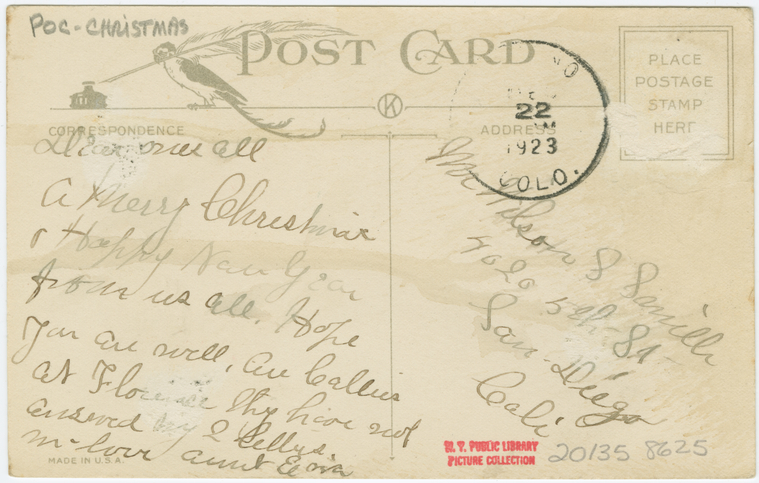 POC-CHRISTMAS
POST CARD
PLACE
POSTAGE
STAMP
HERE
K
CORRESPONDENCE
ADDRESS
NO
22
1923
COLO.
Dear ones all
A Merry Christmas
& Happy New Year
from us all. Hope
you are well.
at Florence they have not
2
aunt
Mr Wilson S
4020 5th St
San-Diego
Cali
MADE IN U.S.A.
N. Y. PUBLIC LIBRARY
PICTURE COLLECTION
20135 8625